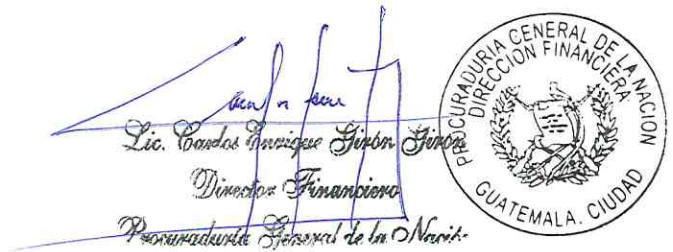 Lic. Carlos Enrique Girón Girón
Director Financiero
Procuraduría General de la Nació
PROCURADURIA GENERAL DE LA NACION
DIRECCION FINANCIERA
GUATEMALA. CIUDAD